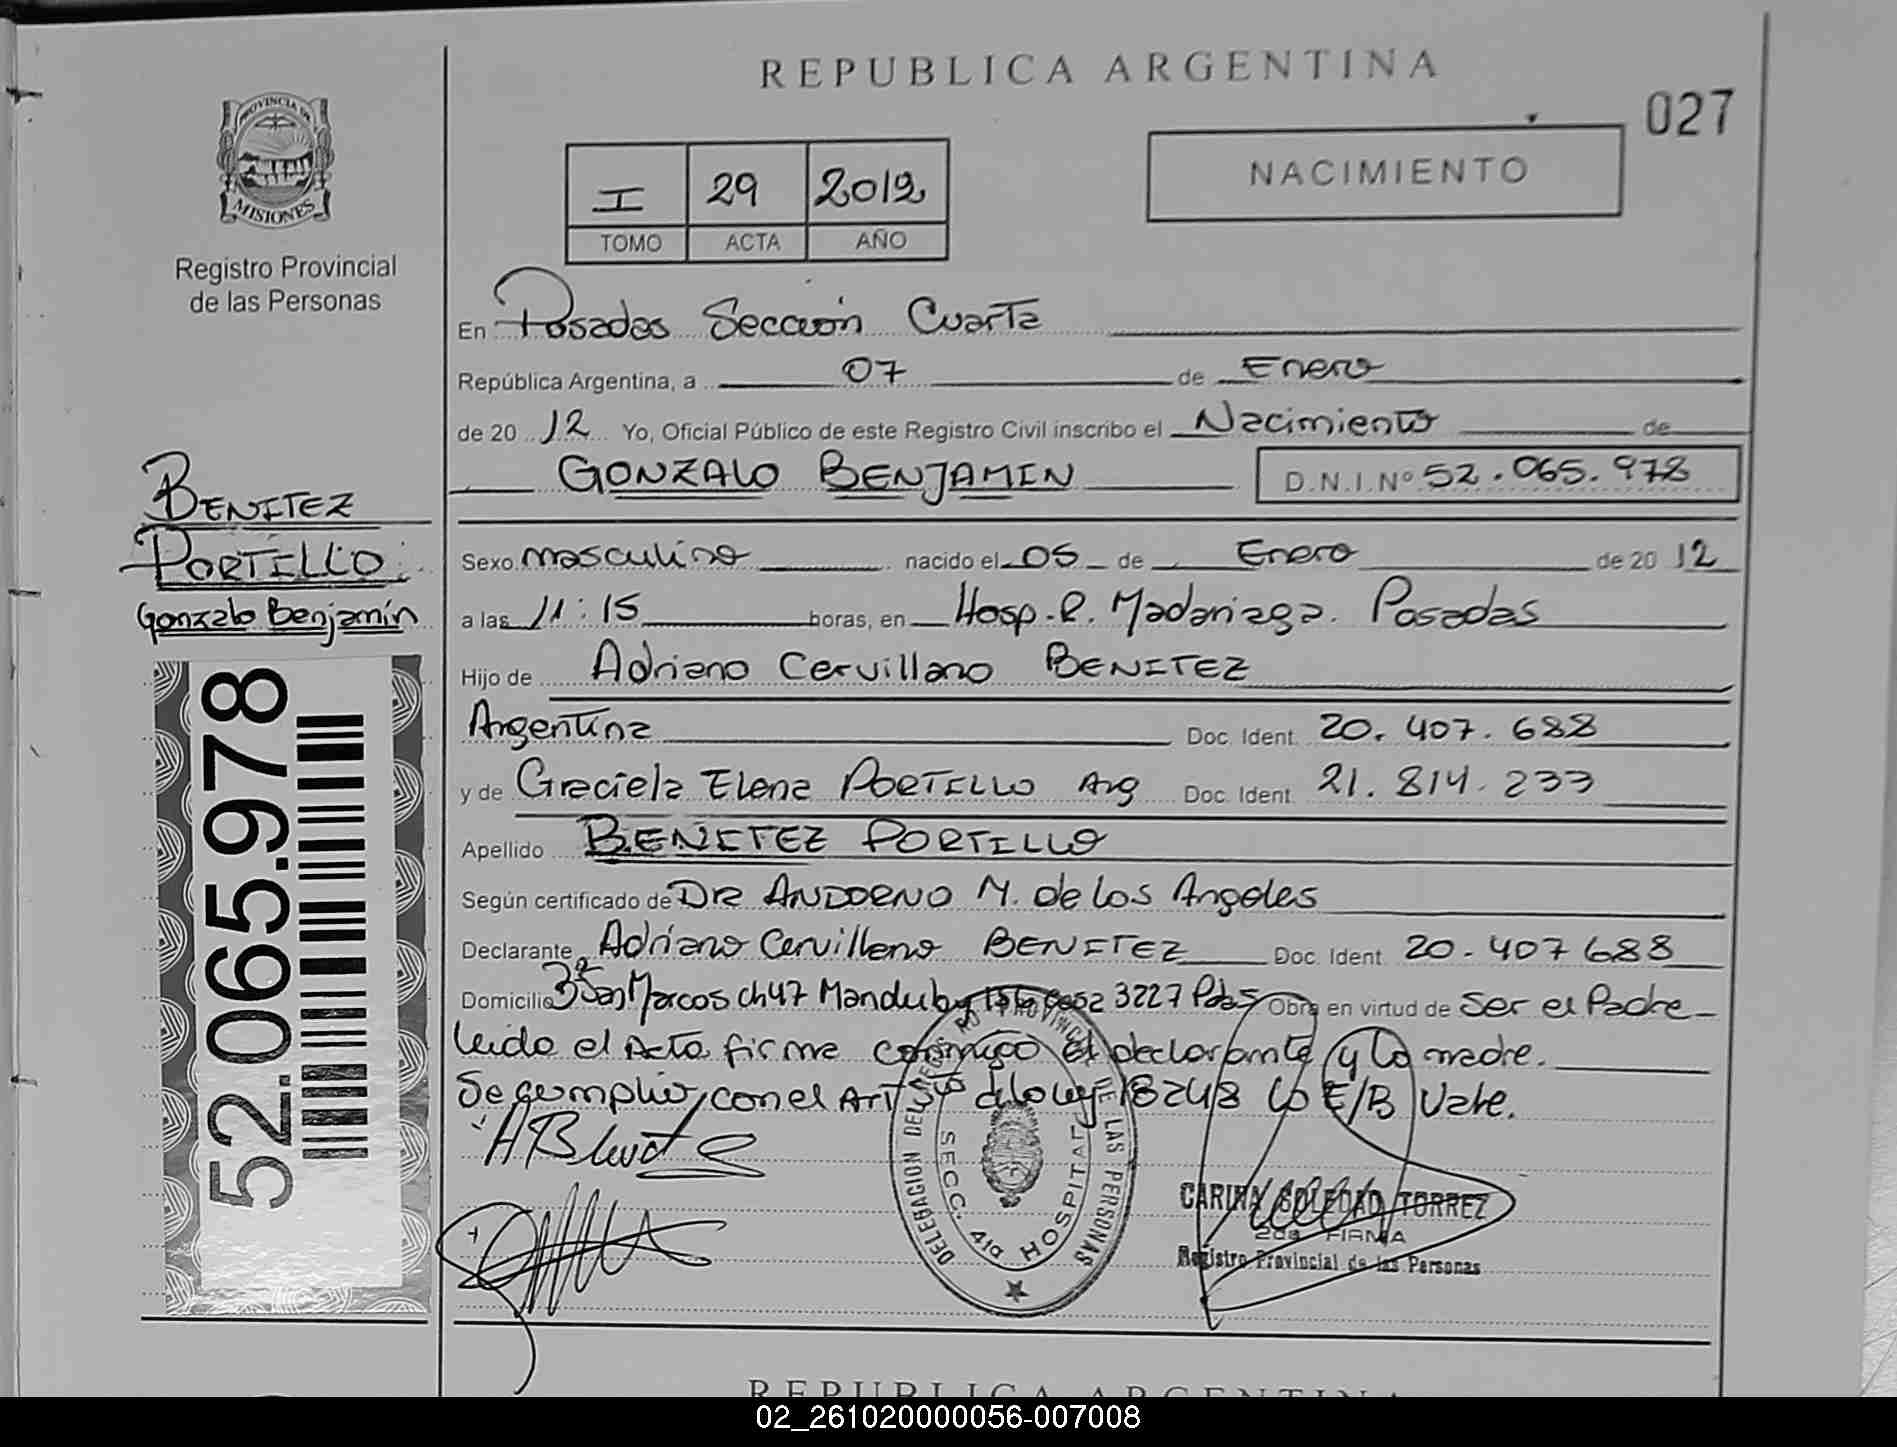 REPUBLICA ARGENTINA
027
PROVINCIA DE
MISIONES
Registro Provincial
de las Personas
I 29 2012
TOMO ACTA AÑO
NACIMIENTO
En Posadas Sección Cuarta
República Argentina, a 07 de Enero
de 20 12 Yo, Oficial Público de este Registro Civil inscribo el Nacimiento de
GONZALO BENJAMIN D.N.I. Nº 52.065.978
BENITEZ
PORTILLO
Gonzalo Benjamín
52.065.978
Sexo masculino nacido el 05 de Enero de 20 12
a las 11:15 horas, en Hosp. R. Madariaga. Posadas
Hijo de Adriano Cervillano BENITEZ
Argentina Doc. Ident. 20.407.688
y de Graciela Elena PORTILLO Arg Doc. Ident. 21.814.233
Apellido BENITEZ PORTILLO
Según certificado de DR ANDORNO M. de los Angeles
Declarante Adriano Cervillano BENITEZ Doc. Ident. 20.407688
Domicilio San Marcos ch47 Manduby 3227 Pdas Obra en virtud de ser el Padre
leido el Acta firma conmigo el declarante y la madre.
Se cumplio con el Art de la ley 18248 E/B Vale.
DELEGACION DEL REGISTRO PROVINCIAL DE LAS PERSONAS
SECC. 4ta HOSPITAL
CARINA SOLEDAD TORREZ
2da FIRMA
Registro Provincial de las Personas
REPUBLICA ARGENTINA
02_261020000056-007008